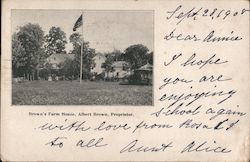 Sept. 28, 1908
Dear Annie
I hope
you are
enjoying
School again
Brown's Farm House, Albert Brown, Proprietor.
with love from Rosa
to all Aunt Alice